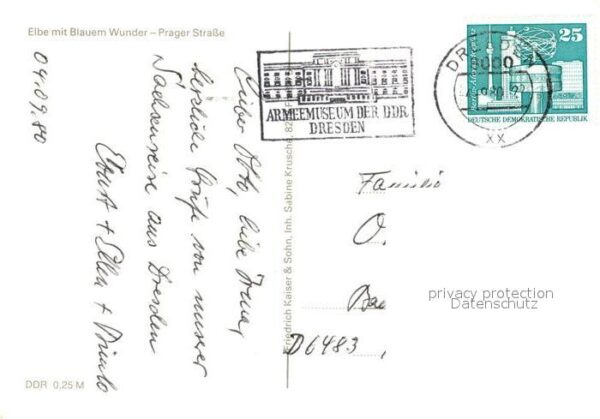 Elbe mit Blauem Wunder – Prager Straße
04.09.80
Lieber Otto, liebe Irma,
herzliche Grüße von unserer
Sachsenreise aus Dresden
Ernst + Ellen +
DDR 0,25 M
Friedrich Kaiser & Sohn, Inh. Sabine Krusche, 82
ARMEEMUSEUM DER DDR
DRESDEN
25
DEUTSCHE DEMOKRATISCHE REPUBLIK
8000
XX
Familie
O.
Bad
D6483,
privacy protection
Datenschutz